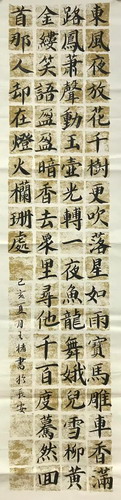 東風夜放花千樹更吹落星如雨寶馬雕車香滿
路鳳蕭聲動玉壺光轉一夜魚龍舞娥兒雪柳黃
金縷笑語盈盈暗香去衆里尋他千百度驀然回
首那人却在燈火欄珊處
己亥夏月書於長安